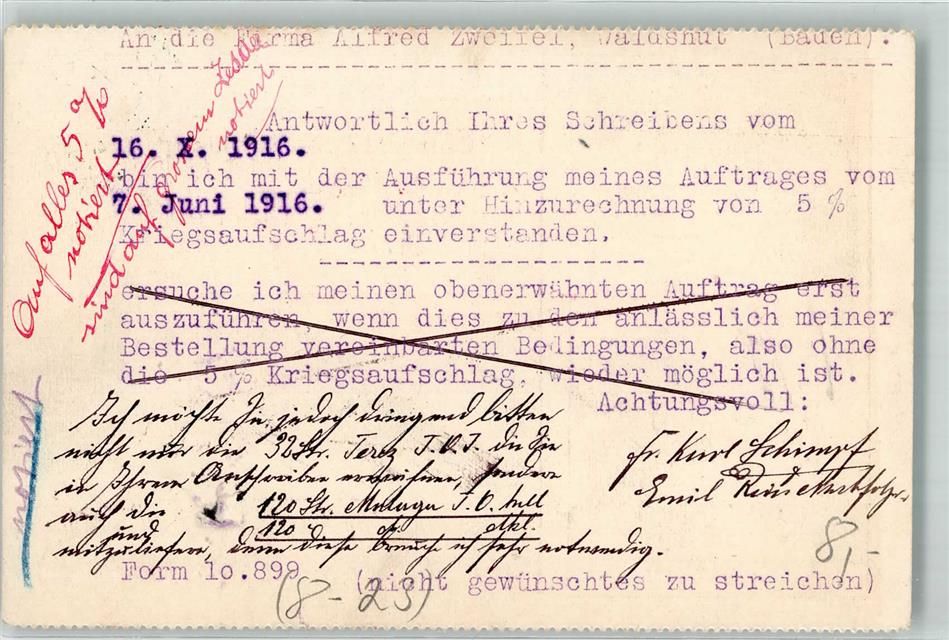 An die Firma Alfred Zweifel, Waldshut (Baden).
Antwortlich Ihres Schreibens vom
16. X. 1916.
bin ich mit der Ausführung meines Auftrages vom
7. Juni 1916. unter Hinzurechnung von 5 %
Kriegsaufschlag einverstanden.
ersuche ich meinen obenerwähnten Auftrag erst
auszuführen, wenn dies zu den anlässlich meiner
Bestellung vereinbarten Bedingungen, also ohne
die 5 % Kriegsaufschlag, wieder möglich ist.
Achtungsvoll:
Ich möchte Sie jedoch dringend bitten
nicht nur die 32 Str. Terez J.O.J. die Sie
in Ihrem Anschreiben erwähnen, sondern
auch die 120 Str. Malaga J.O. hell
120 do. dkl.
mitzuliefern, denn diese brauche ich sehr notwendig.
Fr. Karl Schimpf
Emil
Form 10.899 (nicht gewünschtes zu streichen)
Auf alles 5 %
notiert
sind auf grossem Zettel
notiert
notiert
8,-
(8-23)